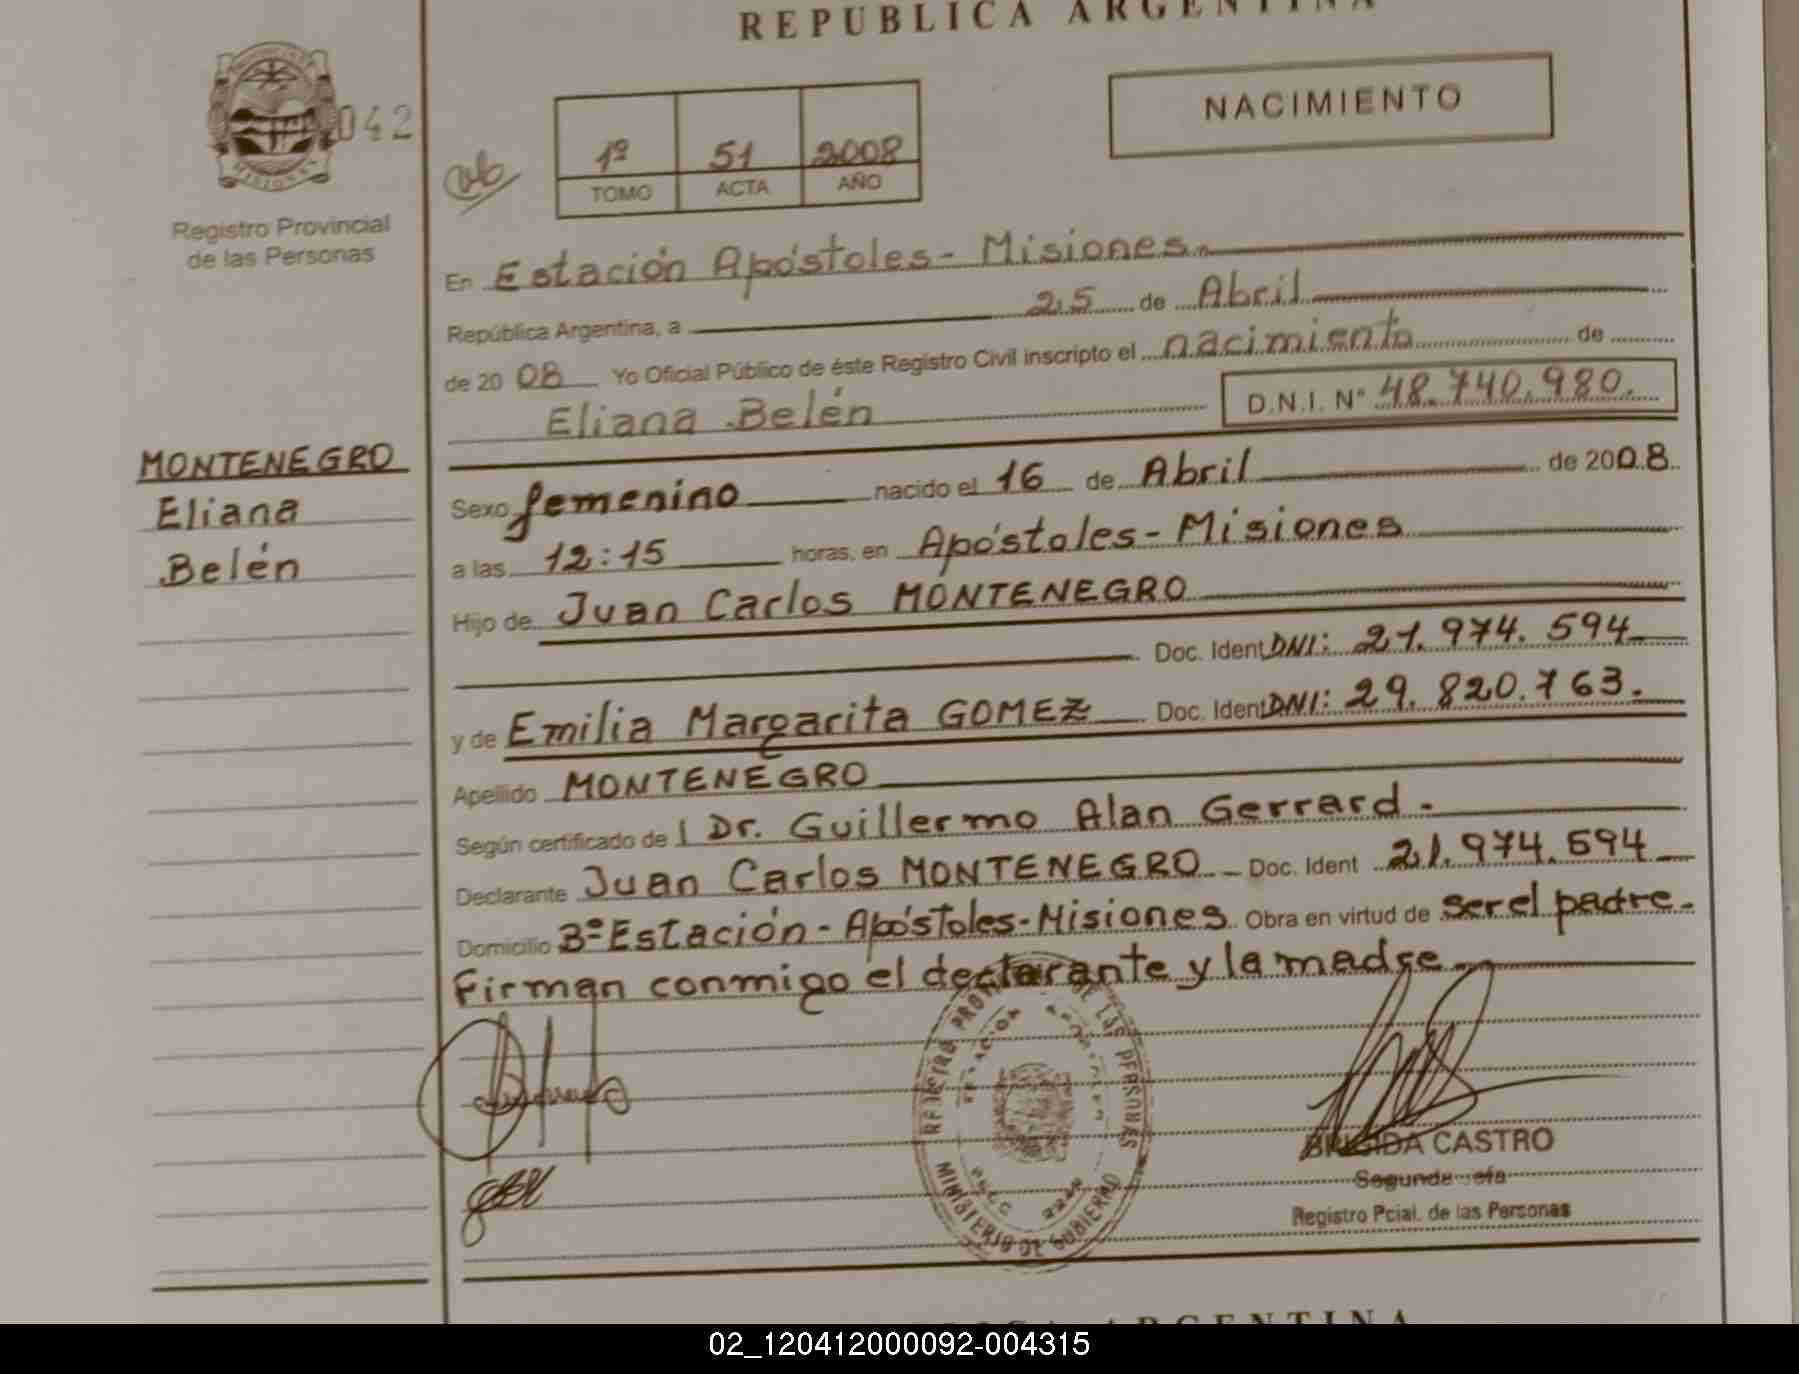 REPUBLICA ARGENTINA
MISIONES
042
Registro Provincial
de las Personas
NACIMIENTO
1º 51 2008
TOMO ACTA AÑO
En Estación Apóstoles - Misiones.
República Argentina, a 25 de Abril
de 2008 Yo Oficial Público de éste Registro Civil inscripto el nacimiento de
Eliana Belén D.N.I. Nº 48.740.980.
MONTENEGRO
Eliana
Belén
Sexo femenino nacido el 16 de Abril de 2008.
a las 12:15 horas, en Apóstoles - Misiones
Hijo de Juan Carlos MONTENEGRO
Doc. Ident DNI: 21.974.594
y de Emilia Margarita GOMEZ Doc. Ident DNI: 29.820.763.
Apellido MONTENEGRO
Según certificado de Dr. Guillermo Alan Gerrard.
Declarante Juan Carlos MONTENEGRO Doc. Ident 21.974.594
Domicilio Bº Estación - Apóstoles - Misiones Obra en virtud de ser el padre.
Firman conmigo el declarante y la madre
REGISTRO PROVINCIAL DE LAS PERSONAS
MINISTERIO DE GOBIERNO
BRIGIDA CASTRO
Segundo Jefa
Registro Pcial. de las Personas
REPUBLICA ARGENTINA
02_120412000092-004315